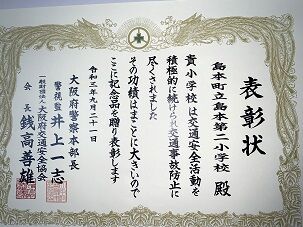 表彰状
島本町立島本第二小学校 殿
貴小学校は交通安全活動を
積極的に続けられ交通事故防止に
尽くされました
その功績はまことに大きいので
ここに記念品を贈り表彰します
令和三年九月二十一日
大阪府警察本部長
警視監 井上一志
一般財団法人 大阪府交通安全協会
会長 銭高善雄